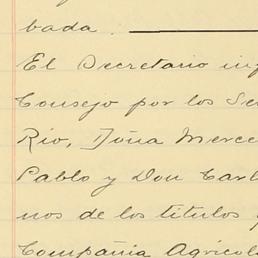 bada.
El Secretario inf
Consejo por los Se
Rio, Doña Merce
Pablo y Don Carl
nos de los titulos y
Compañia Agricola